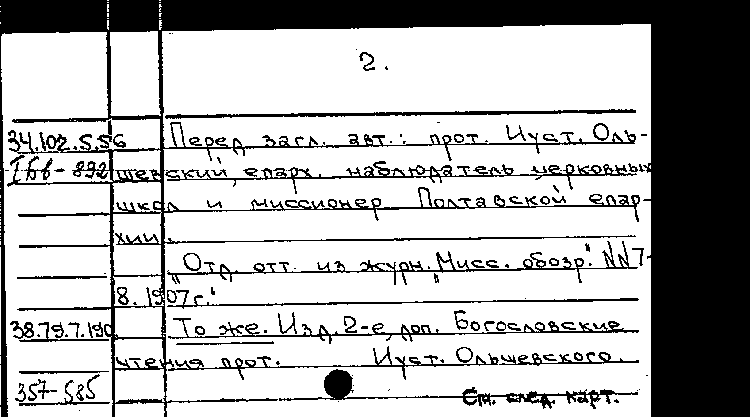 2.
34.102.5.56 Перед загл. авт.: прот. Иуст. Оль-
Iбв-892 шевский, епарх. наблюдатель церковных
школ и миссионер Полтавской епар-
хии.
"Отд. отт. из журн. "Мисс. обозр." NN7-
8. 1907г."
38.79.7.190 То же. Изд. 2-е, доп. Богословские
чтения прот. Иуст. Ольшевского.
357-585
См. след. карт.